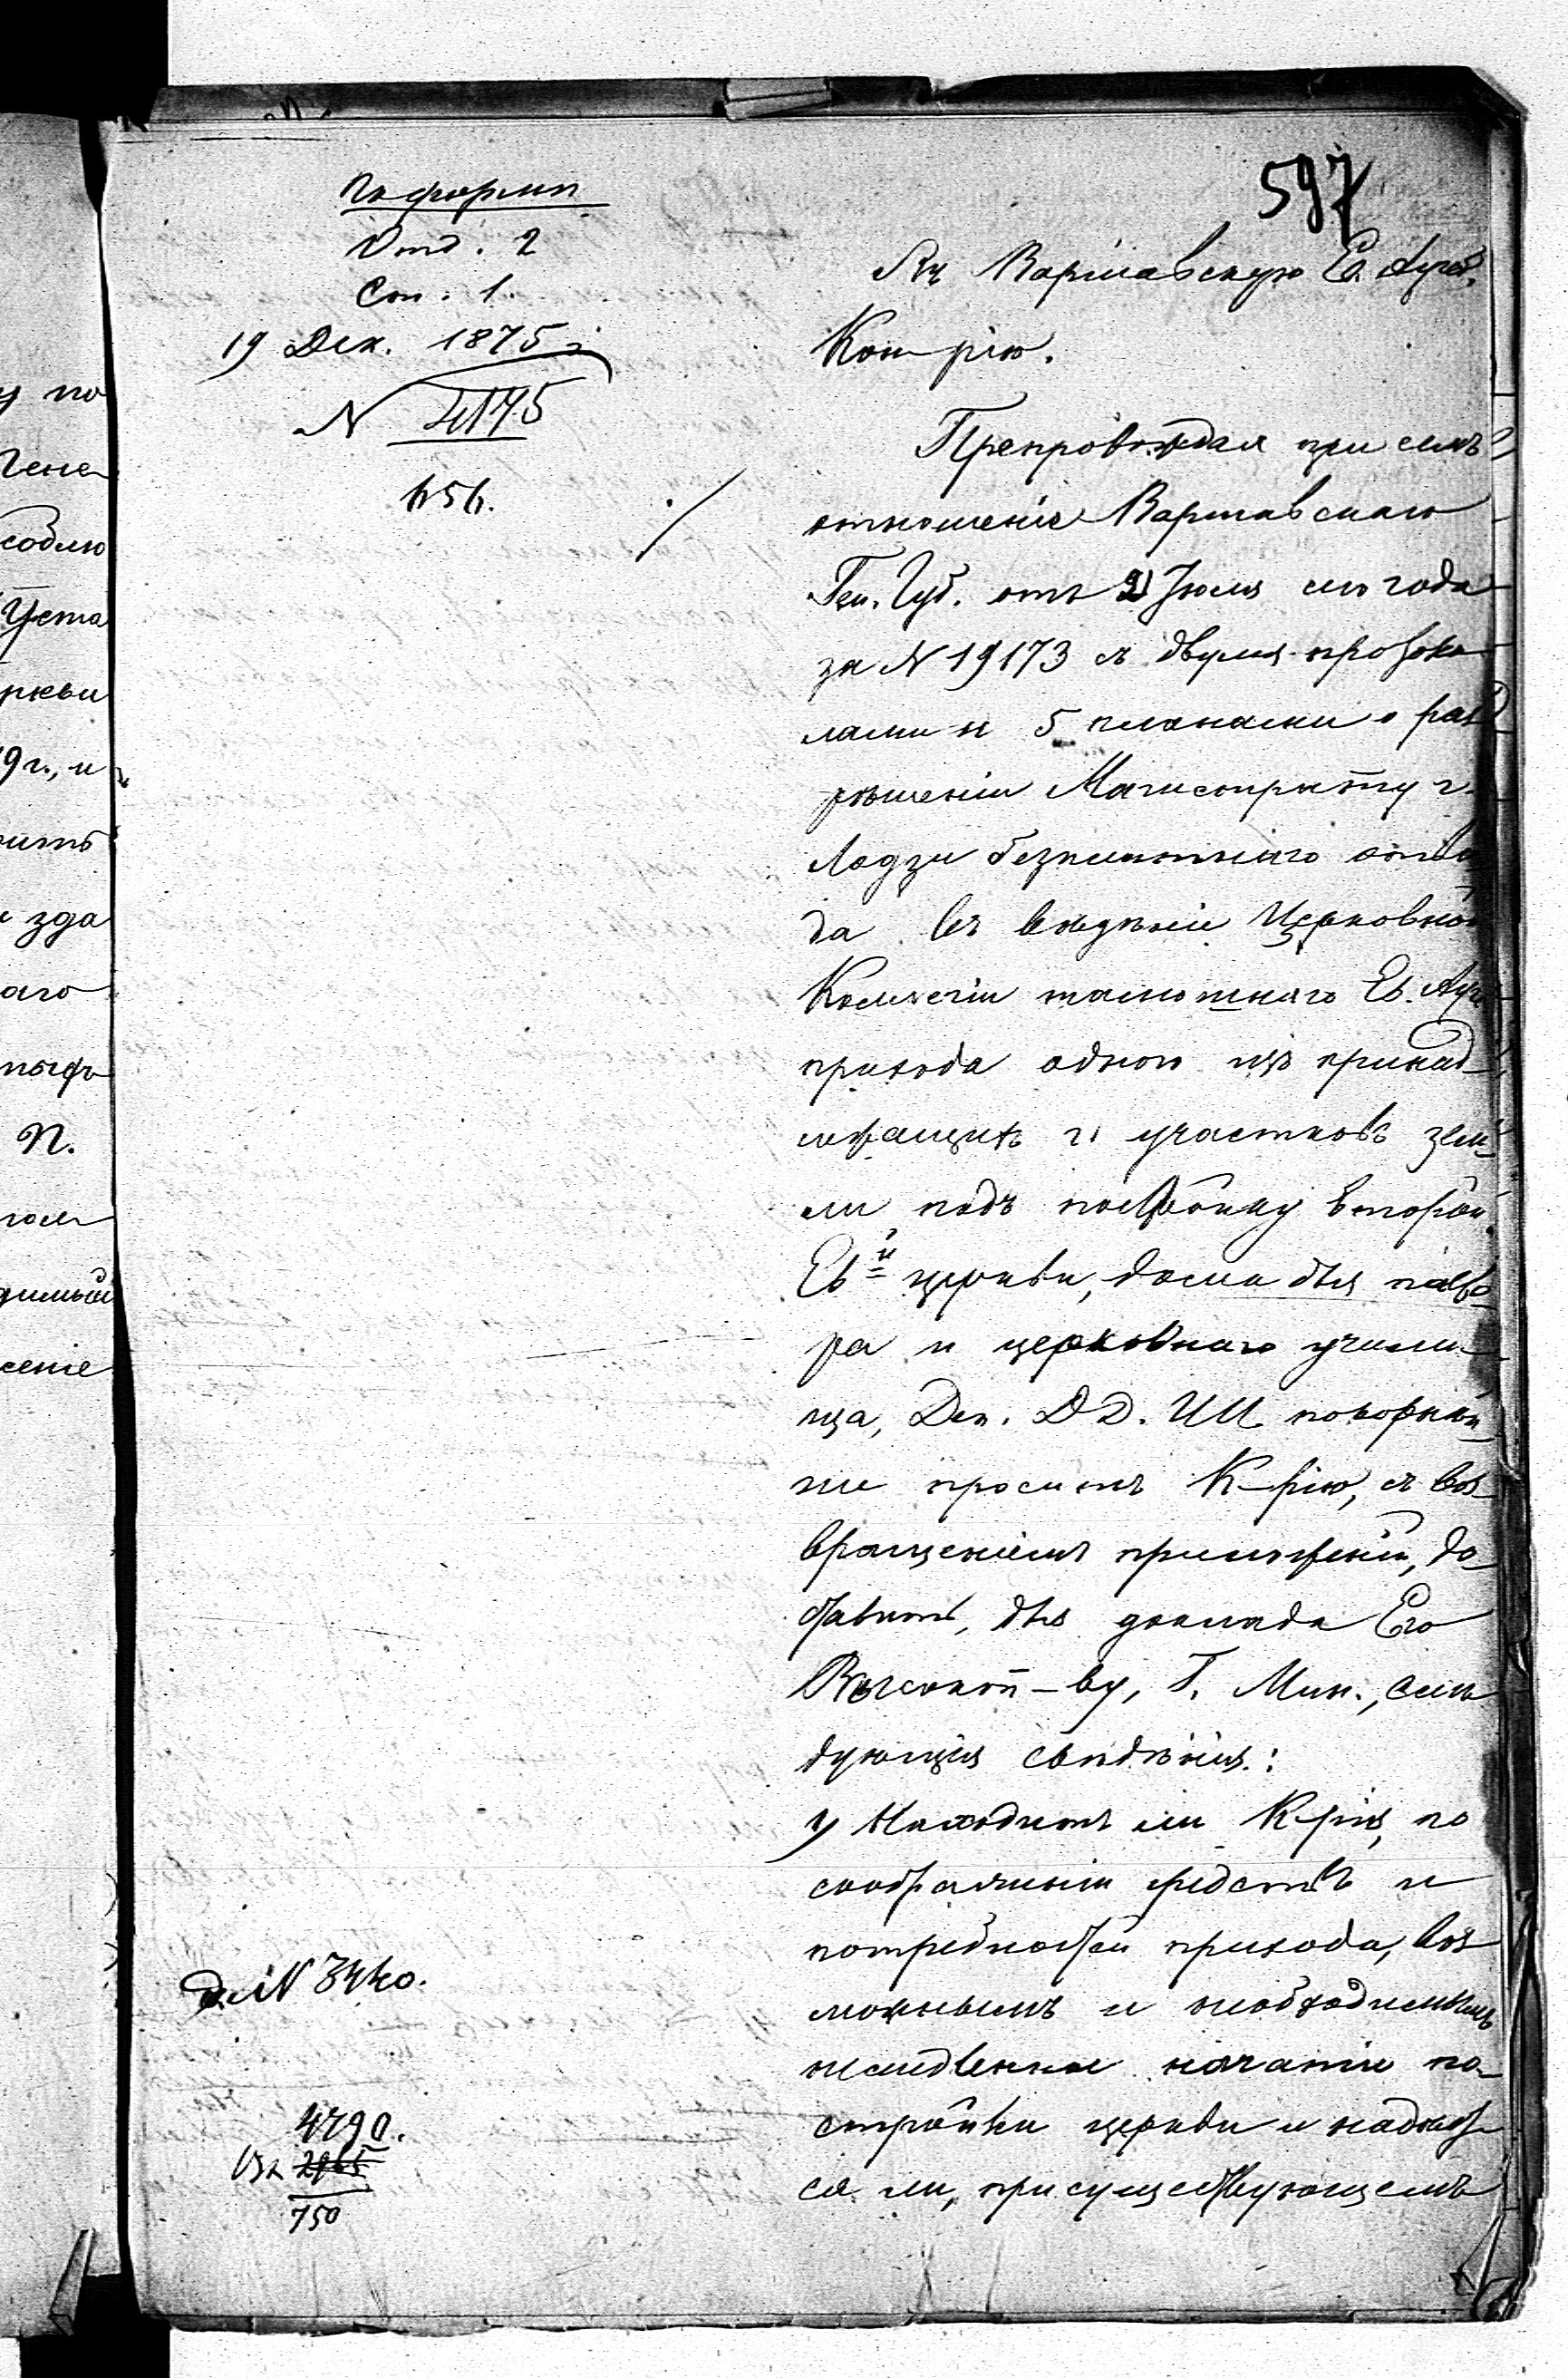 по форме
Отд. 2
Стл. 1.
19 Дек. 1875 г.
N 4175
656.
597
Къ Варшавскую Ев. Аугсб.
Кон-рію.
Препровождая при семъ
отношеніе Варшавскаго
Ген. Губ. отъ 2 Іюля сего года
за N 19173 съ двумя протоко
лами и 5 планами о раз
рѣшеніи Магистрату г.
Лодзи безплатнаго отво
да въ владѣніе Церковной
Коллегіи тамошняго Ев. Ауг.
прихода одного изъ принад-
лежащихъ г. участковъ зем-
ли подъ постройку второй
Ев-й церкви, дома для пасто-
ра и церковнаго учили-
ща, Деп. Д. Д. И. И. покорнѣй-
ше проситъ К-рію, съ воз-
вращеніемъ приложеній, до-
ставить, для доклада Его
Высокоп-ву, Г. Мин., слѣ
дующія свѣдѣнія:
1) Находитъ ли К-рія, по
соображеніи средствъ и
потребностей прихода, воз
можнымъ и необходимымъ
немедленное начатіе по-
стройки церкви и
ся ли, при существующемъ
д. N 3440.
4790.
Вх. 2965
750
у по
Гене
соблю
Уста
ркви
9 г., и
ить
зда
аго
П.
сеніе